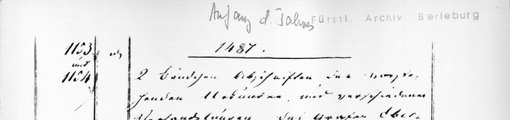 Anfang d. Jahres
Fürstl. Archiv Berleburg
1153 1487.
und
1154 2 Bändchen Abschriften der vorste-
henden Urkunden, und verschiedener
Verhandlungen des Grafen Eber-